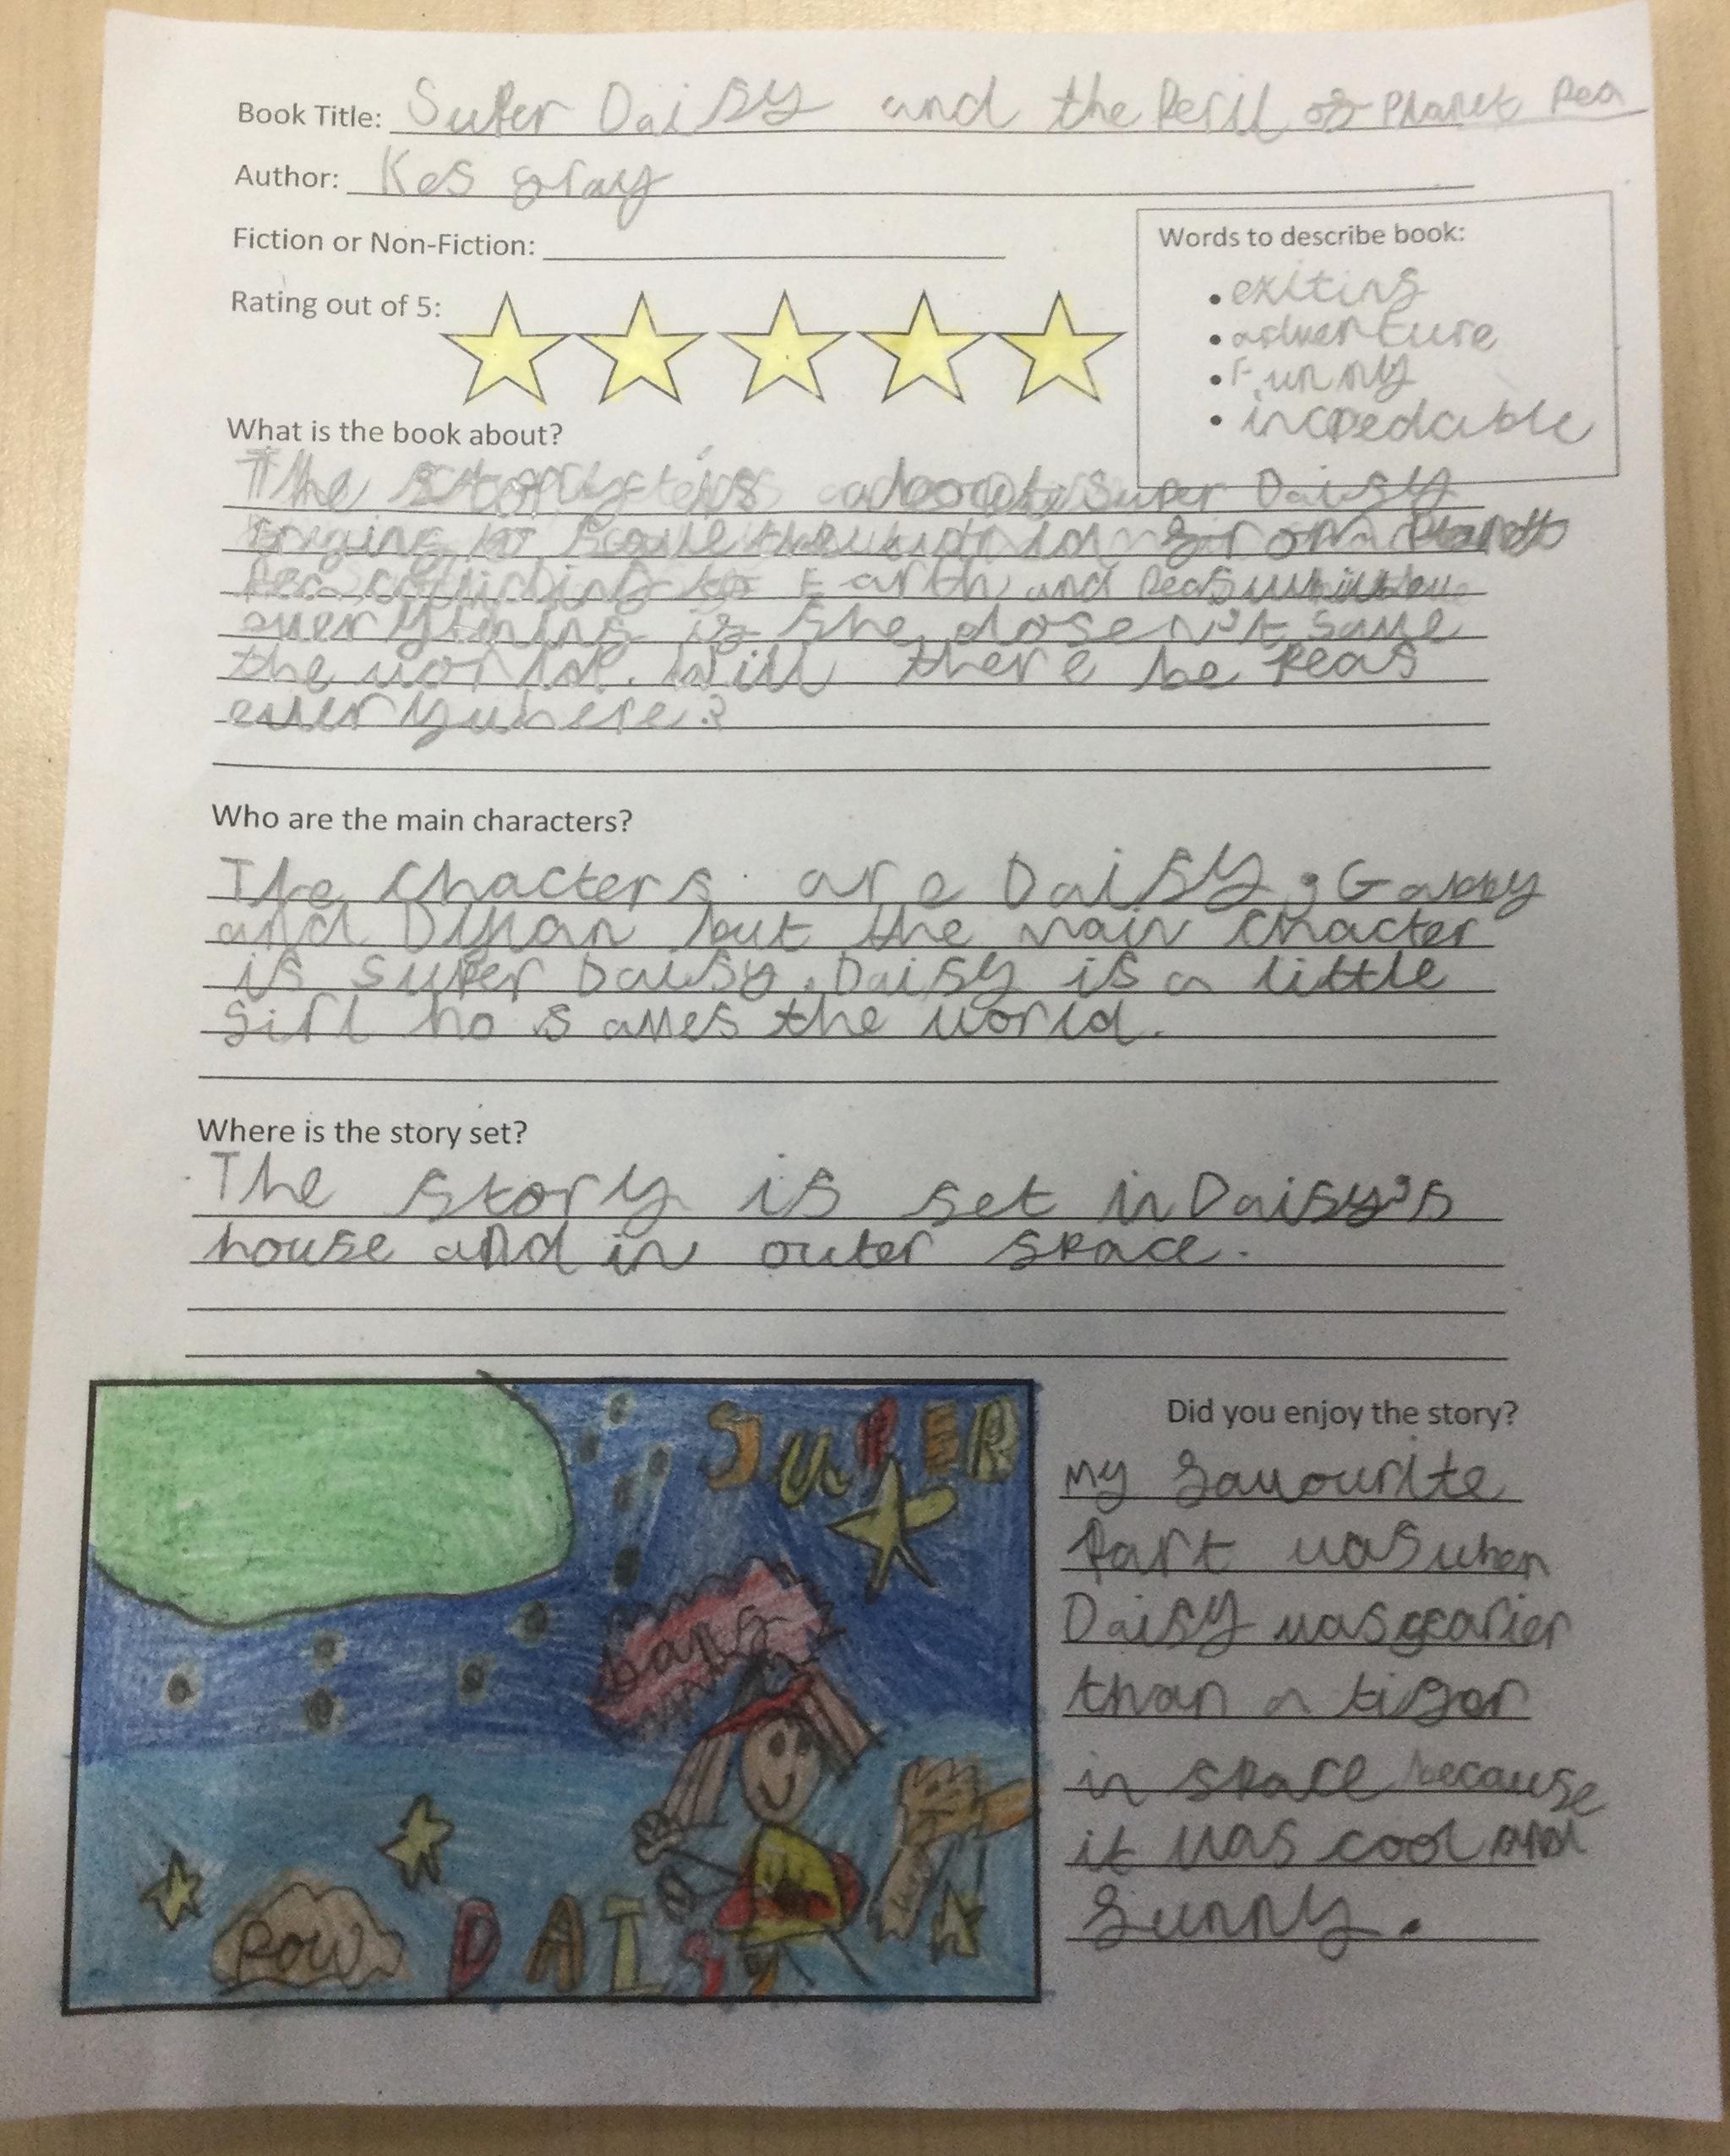 Book Title: Super Daisy and the Peril of Planet Pea
Author: Kes gray
Fiction or Non-Fiction:
Words to describe book:
Rating out of 5:
• exiting
• adventure
• Funny
• incredable
What is the book about?
The story is about Super Daisy
to save the world from Planet
Pea to Earth and Peas will
everything if she dosen't save
the world. Will there be Peas
everywhere?
Who are the main characters?
The Chacters are Daisy, Gabby
and Dylan but the main Chacter
is Super Daisy. Daisy is a little
girl ho saves the world.
Where is the story set?
The story is set in Daisy's
house and in outer space.
SUPER
bang
POW
DAISY
Did you enjoy the story?
My favourite
Part was when
Daisy was
than a tiger
in space because
it was cool and
funny.